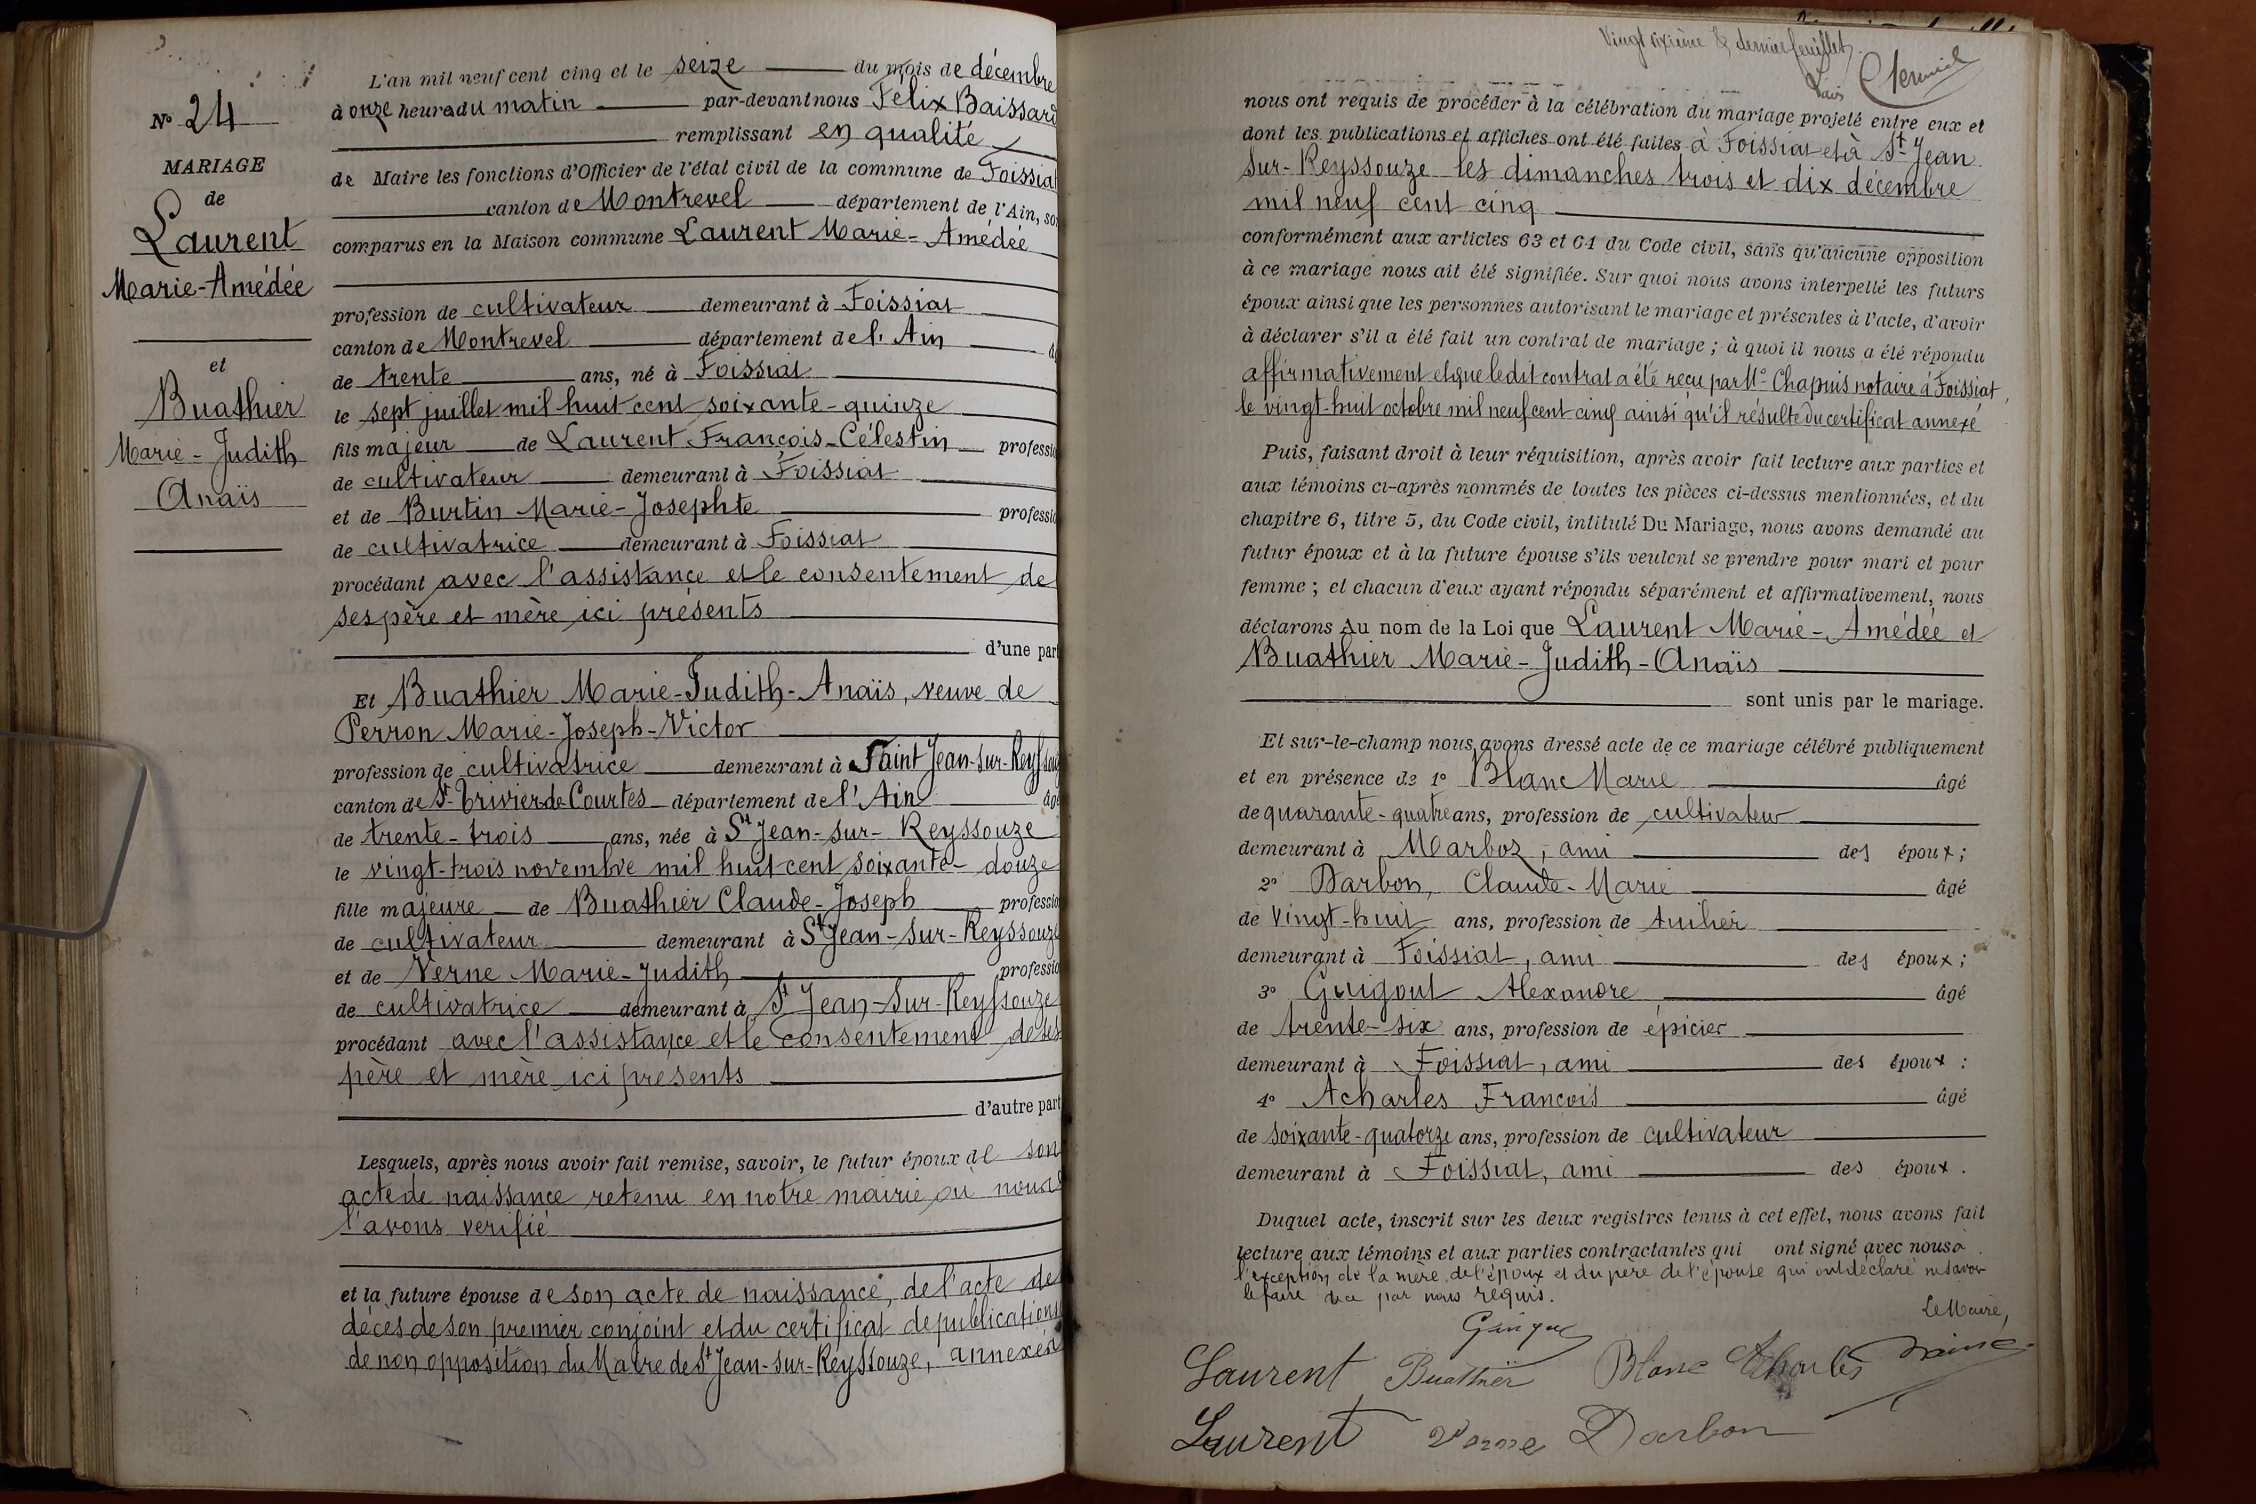 L'an mil neuf cent cinq et le seize du mois de décembre
à onze heures du matin par-devant nous Félix Baissard
remplissant en qualité
de Maire les fonctions d'Officier de l'état civil de la commune de Foissiat
canton de Montrevel département de l'Ain, so
comparus en la Maison commune Laurent Marie-Amédée
profession de cultivateur demeurant à Foissiat
canton de Montrevel département de l'Ain
de trente ans, né à Foissiat
le sept juillet mil huit cent soixante-quinze
fils majeur de Laurent François-Célestin professio
de cultivateur demeurant à Foissiat
et de Burtin Marie-Josephte professio
de cultivatrice demeurant à Foissiat
procédant avec l'assistance et le consentement de
ses père et mère ici présents
d'une part
Et Buathier Marie-Judith-Anaïs, veuve de
Perron Marie-Joseph-Victor
profession de cultivatrice demeurant à Saint Jean-sur-Reyssouze
canton de St-Trivier-de-Courtes département de l'Ain âgé
de trente-trois ans, née à St Jean-sur-Reyssouze
le vingt-trois novembre mil huit cent soixante-douze
fille majeure de Buathier Claude-Joseph professio
de cultivateur demeurant à St Jean-sur-Reyssouze
et de Verne Marie-Judith professio
de cultivatrice demeurant à St Jean-sur-Reyssouze
procédant avec l'assistance et le consentement de ses
père et mère ici présents
d'autre part
Lesquels, après nous avoir fait remise, savoir, le futur époux de son
acte de naissance retenu en notre mairie où nous
l'avons verifié
et la future épouse de son acte de naissance, de l'acte de
décès de son premier conjoint et du certificat de publications
de non opposition du Maire de St Jean-sur-Reyssouze, annexés
No 24
MARIAGE
de
Laurent
Marie-Amédée
et
Buathier
Marie-Judith
Anaïs
Vingt sixième & dernier feuillet
nous ont requis de procéder à la célébration du mariage projeté entre eux et
dont les publications et affiches ont été faites à Foissiat et à St Jean
sur-Reyssouze les dimanches trois et dix décembre
mil neuf cent cinq
conformément aux articles 63 et 64 du Code civil, sans qu'aucune opposition
à ce mariage nous ait été signifiée. Sur quoi nous avons interpellé les futurs
époux ainsi que les personnes autorisant le mariage et présentes à l'acte, d'avoir
à déclarer s'il a été fait un contrat de mariage ; à quoi il nous a été répondu
affirmativement et que ledit contrat a été reçu par Me Chapuis notaire à Foissiat,
le vingt-huit octobre mil neuf cent cinq ainsi qu'il résulte du certificat annexé
Puis, faisant droit à leur réquisition, après avoir fait lecture aux parties et
aux témoins ci-après nommés de toutes les pièces ci-dessus mentionnées, et du
chapitre 6, titre 5, du Code civil, intitulé Du Mariage, nous avons demandé au
futur époux et à la future épouse s'ils veulent se prendre pour mari et pour
femme ; et chacun d'eux ayant répondu séparément et affirmativement, nous
déclarons Au nom de la Loi que Laurent Marie-Amédée et
Buathier Marie-Judith-Anaïs
sont unis par le mariage.
Et sur-le-champ nous avons dressé acte de ce mariage célébré publiquement
et en présence de 1° Blanc Marie âgé
de quarante-quatre ans, profession de cultivateur
demeurant à Marboz, ami des époux ;
2° Darbon, Claude-Marie âgé
de vingt-huit ans, profession de tuilier
demeurant à Foissiat, ami des époux ;
3° Guigout Alexandre âgé
de trente-six ans, profession de épicier
demeurant à Foissiat, ami des époux :
4° Acharles François âgé
de soixante-quatorze ans, profession de cultivateur
demeurant à Foissiat, ami des époux .
Duquel acte, inscrit sur les deux registres tenus à cet effet, nous avons fait
lecture aux témoins et aux parties contractantes qui ont signé avec nous à
l'exception de la mère de l'époux et du père de l'épouse qui ont déclaré ne savoir
le faire de ce par nous requis.
Le Maire,
Laurent Buathier Blanc Acharles
Laurent Verne Darbon